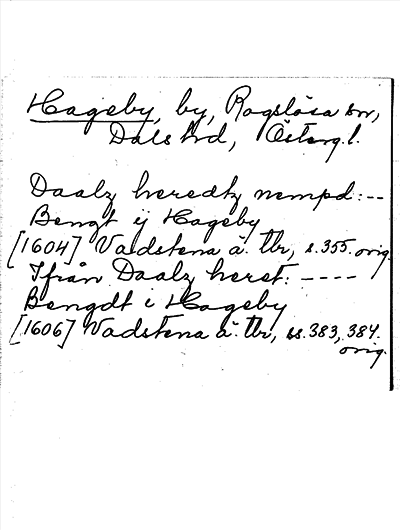 Hageby, by, Rogslösa sn,
Dals hrd, Östergl.
Daalz heredtz nempd: --
Bengt ij Hageby
[1604] Vadstena ä. tbr, s. 355. orig.
Ifrån Daalz herst: ----
Bengdt i Hageby
[1606] Vadstena ä. tbr, ss. 383, 384.
orig.